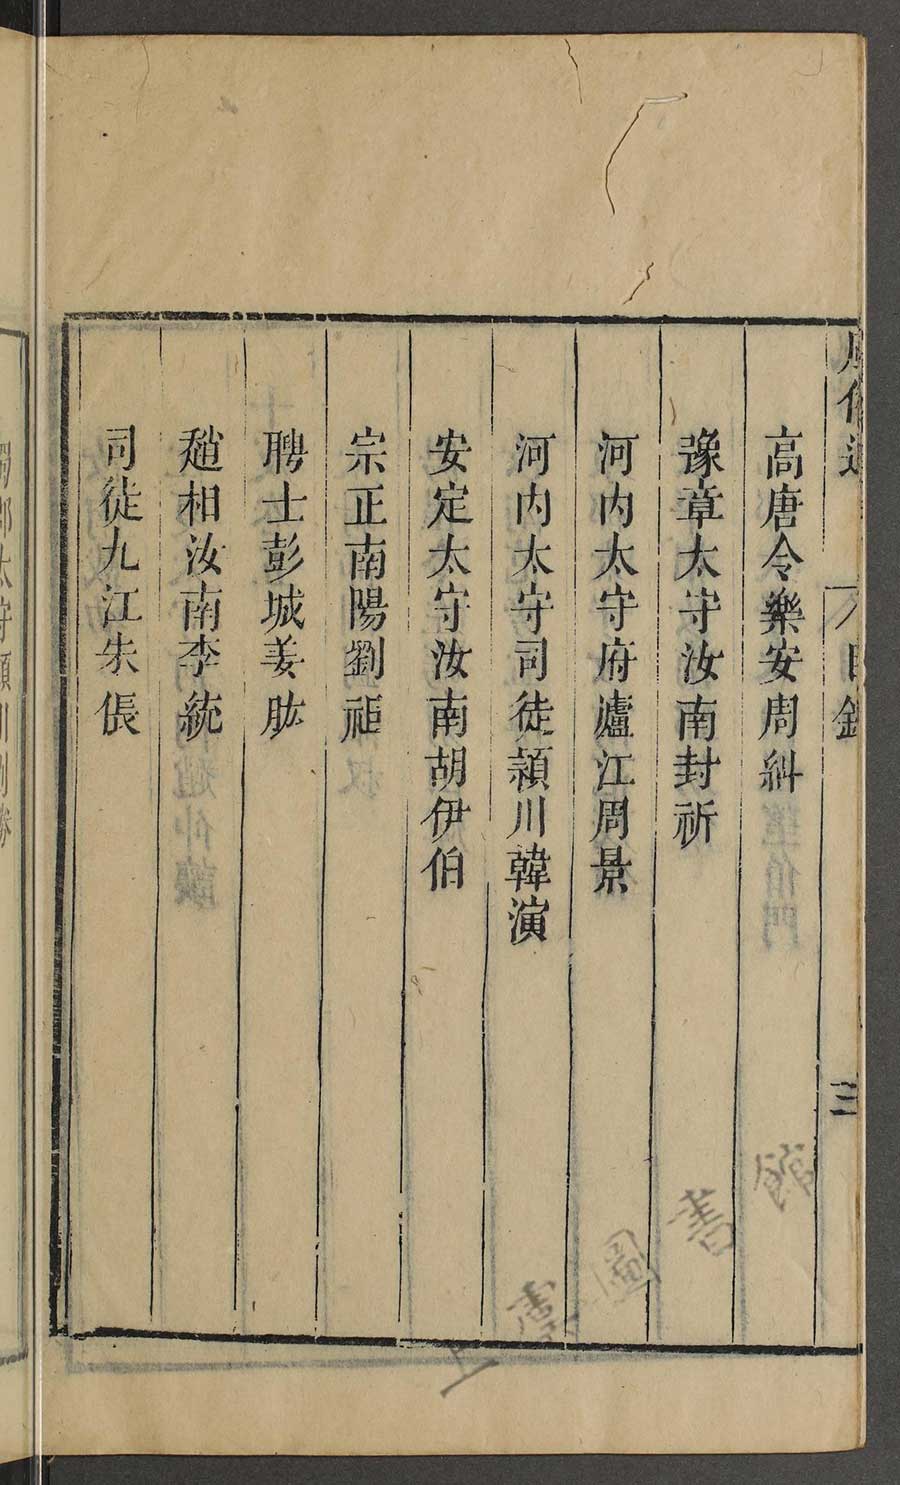 高唐令樂安周糾
豫章太守汝南封祈
河內太守府廬江周景
河內太守司徒潁川韓演
安定太守汝南胡伊伯
宗正南陽劉祖
聘士彭城姜肱
趙相汝南李統
司徒九江朱倀
目錄
三
上圖書館